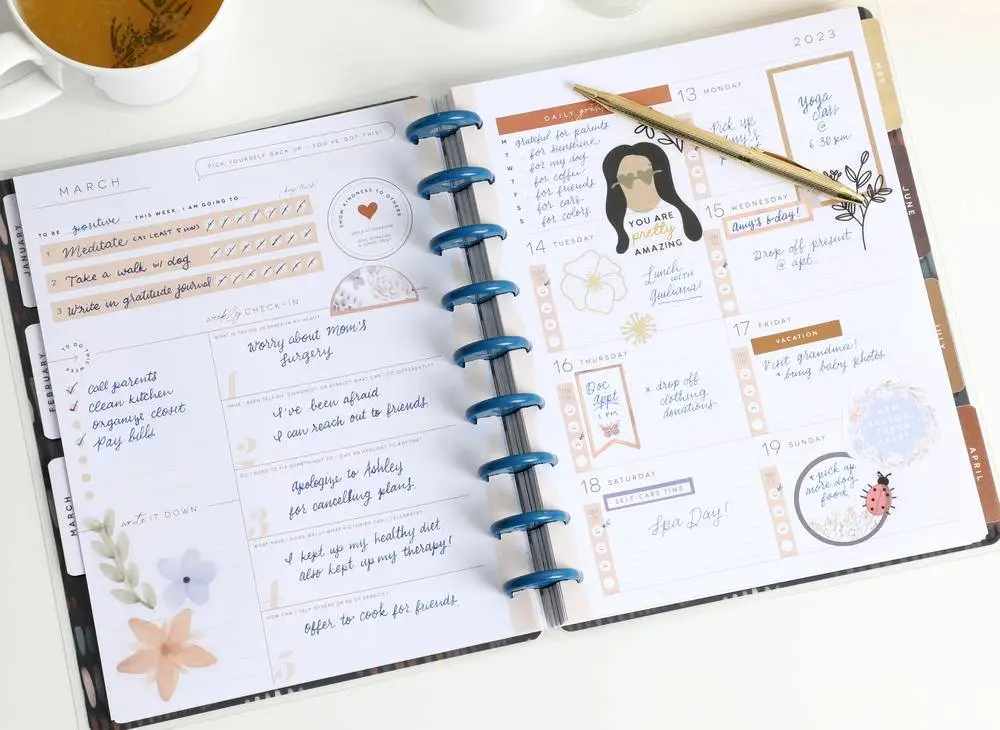 PICK YOURSELF BACK UP - YOU'VE GOT THIS!
MARCH
TO BE positive THIS WEEK, I AM GOING TO...
1 Meditate (AT LEAST 5 MIN)
2 Take a walk w/ dog
3 Write in gratitude journal
SHOW KINDNESS TO OTHERS
weekly CHECK-IN
TO DO THIS WEEK
call parents
clean kitchen
organize closet
Pay bills
write IT DOWN
WHAT IS TAKING UP SPACE IN MY HEAD?
1
Worry about Mom's
Surgery
2
I've been afraid
I can reach out to friends.
DO I NEED TO FIX SOMETHING? DO I OWE AN APOLOGY TO ANYONE?
3
apologize to Ashley
for cancelling plans.
4
I kept up my healthy diet
also kept up my therapy!
HOW CAN I HELP OTHERS OR BE OF SERVICE?
5
offer to cook for friends.
JANUARY
FEBRUARY
MARCH
2023
DAILY
M grateful for parents
T - for sunshine
W - for my dog
T - for coffee
F - for friends
S - for cars
S - for colors
YOU ARE
pretty
AMAZING
13 MONDAY
Pick up
Amy's
Yoga
class
@
6:30 pm
14 TUESDAY
Lunch
WITH
Giuliana!
15 WEDNESDAY
Amy's b-day!
Drop off present
@ apt.
16 THURSDAY
Doc
appt
1 PM
* drop off
clothing
donations
17 FRIDAY
VACATION
Visit grandma!
* bring baby photos
18 SATURDAY
SELF-CARE TIME
Spa Day!
19 SUNDAY
* pick up
more dog
food.
MAY
JUNE
JULY
APRIL